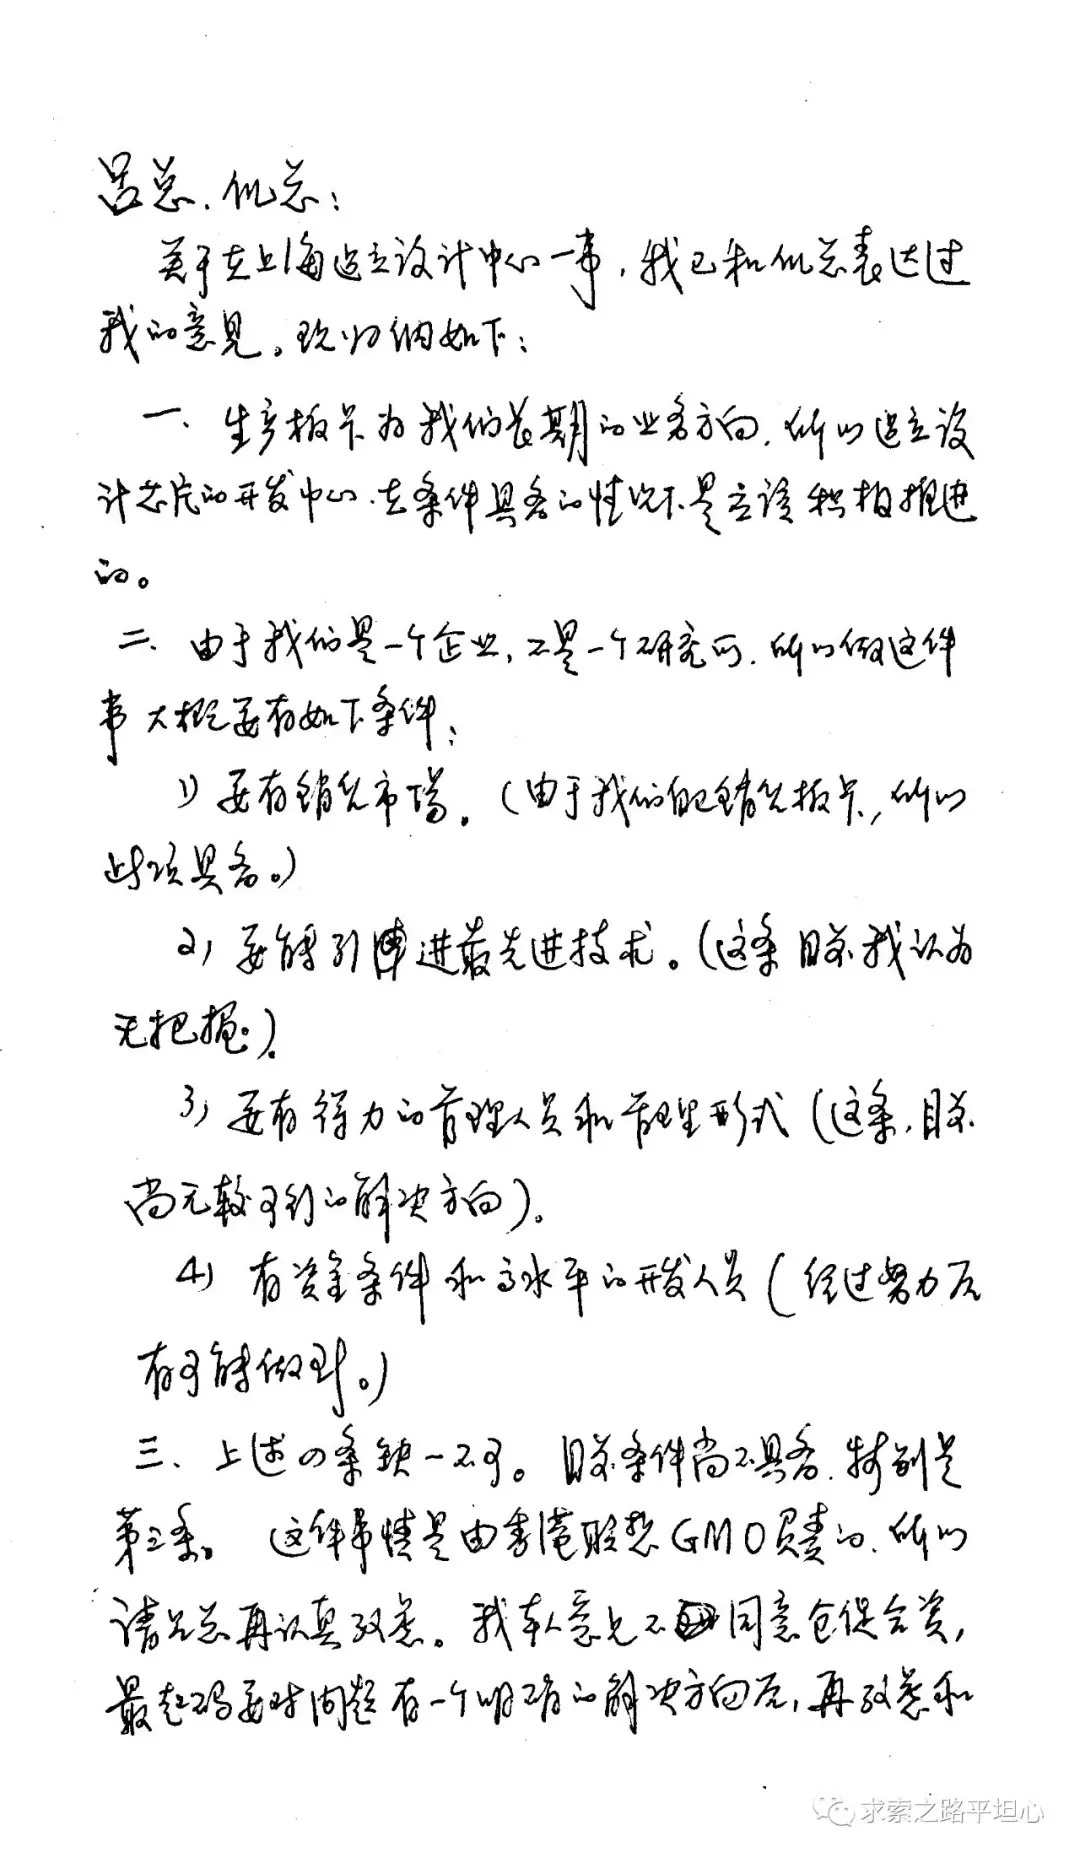 吕总、倪总：
关于在上海建立设计中心一事，我已和倪总表达过
我的意见。现归纳如下：
一、生产板卡为我们长期的业务方向，所以建立设
计芯片的开发中心，在条件具备的情况下是应该积极推进
的。
二、由于我们是一个企业，不是一个研究所，所以做这件
事大概要有如下条件：
1）要有销售市场。（由于我们自己销售板卡，所以
此项具备。）
2）要能引进最先进技术。（这条目前我认为
无把握。）
3）要有得力的管理人员和管理形式（这条，目前
尚无较可行的解决方向）。
4）有资金条件和高水平的开发人员（经过努力后
有可能做到。）
三、上述四条缺一不可。目前条件尚不具备，特别是
第三条。 这件事情是由香港联想GMO负责的，所以
请吕总再认真考虑。我本人意见不同意仓促合资，
最起码要对问题有一个明确的解决方向后，再考虑和
求索之路平坦心